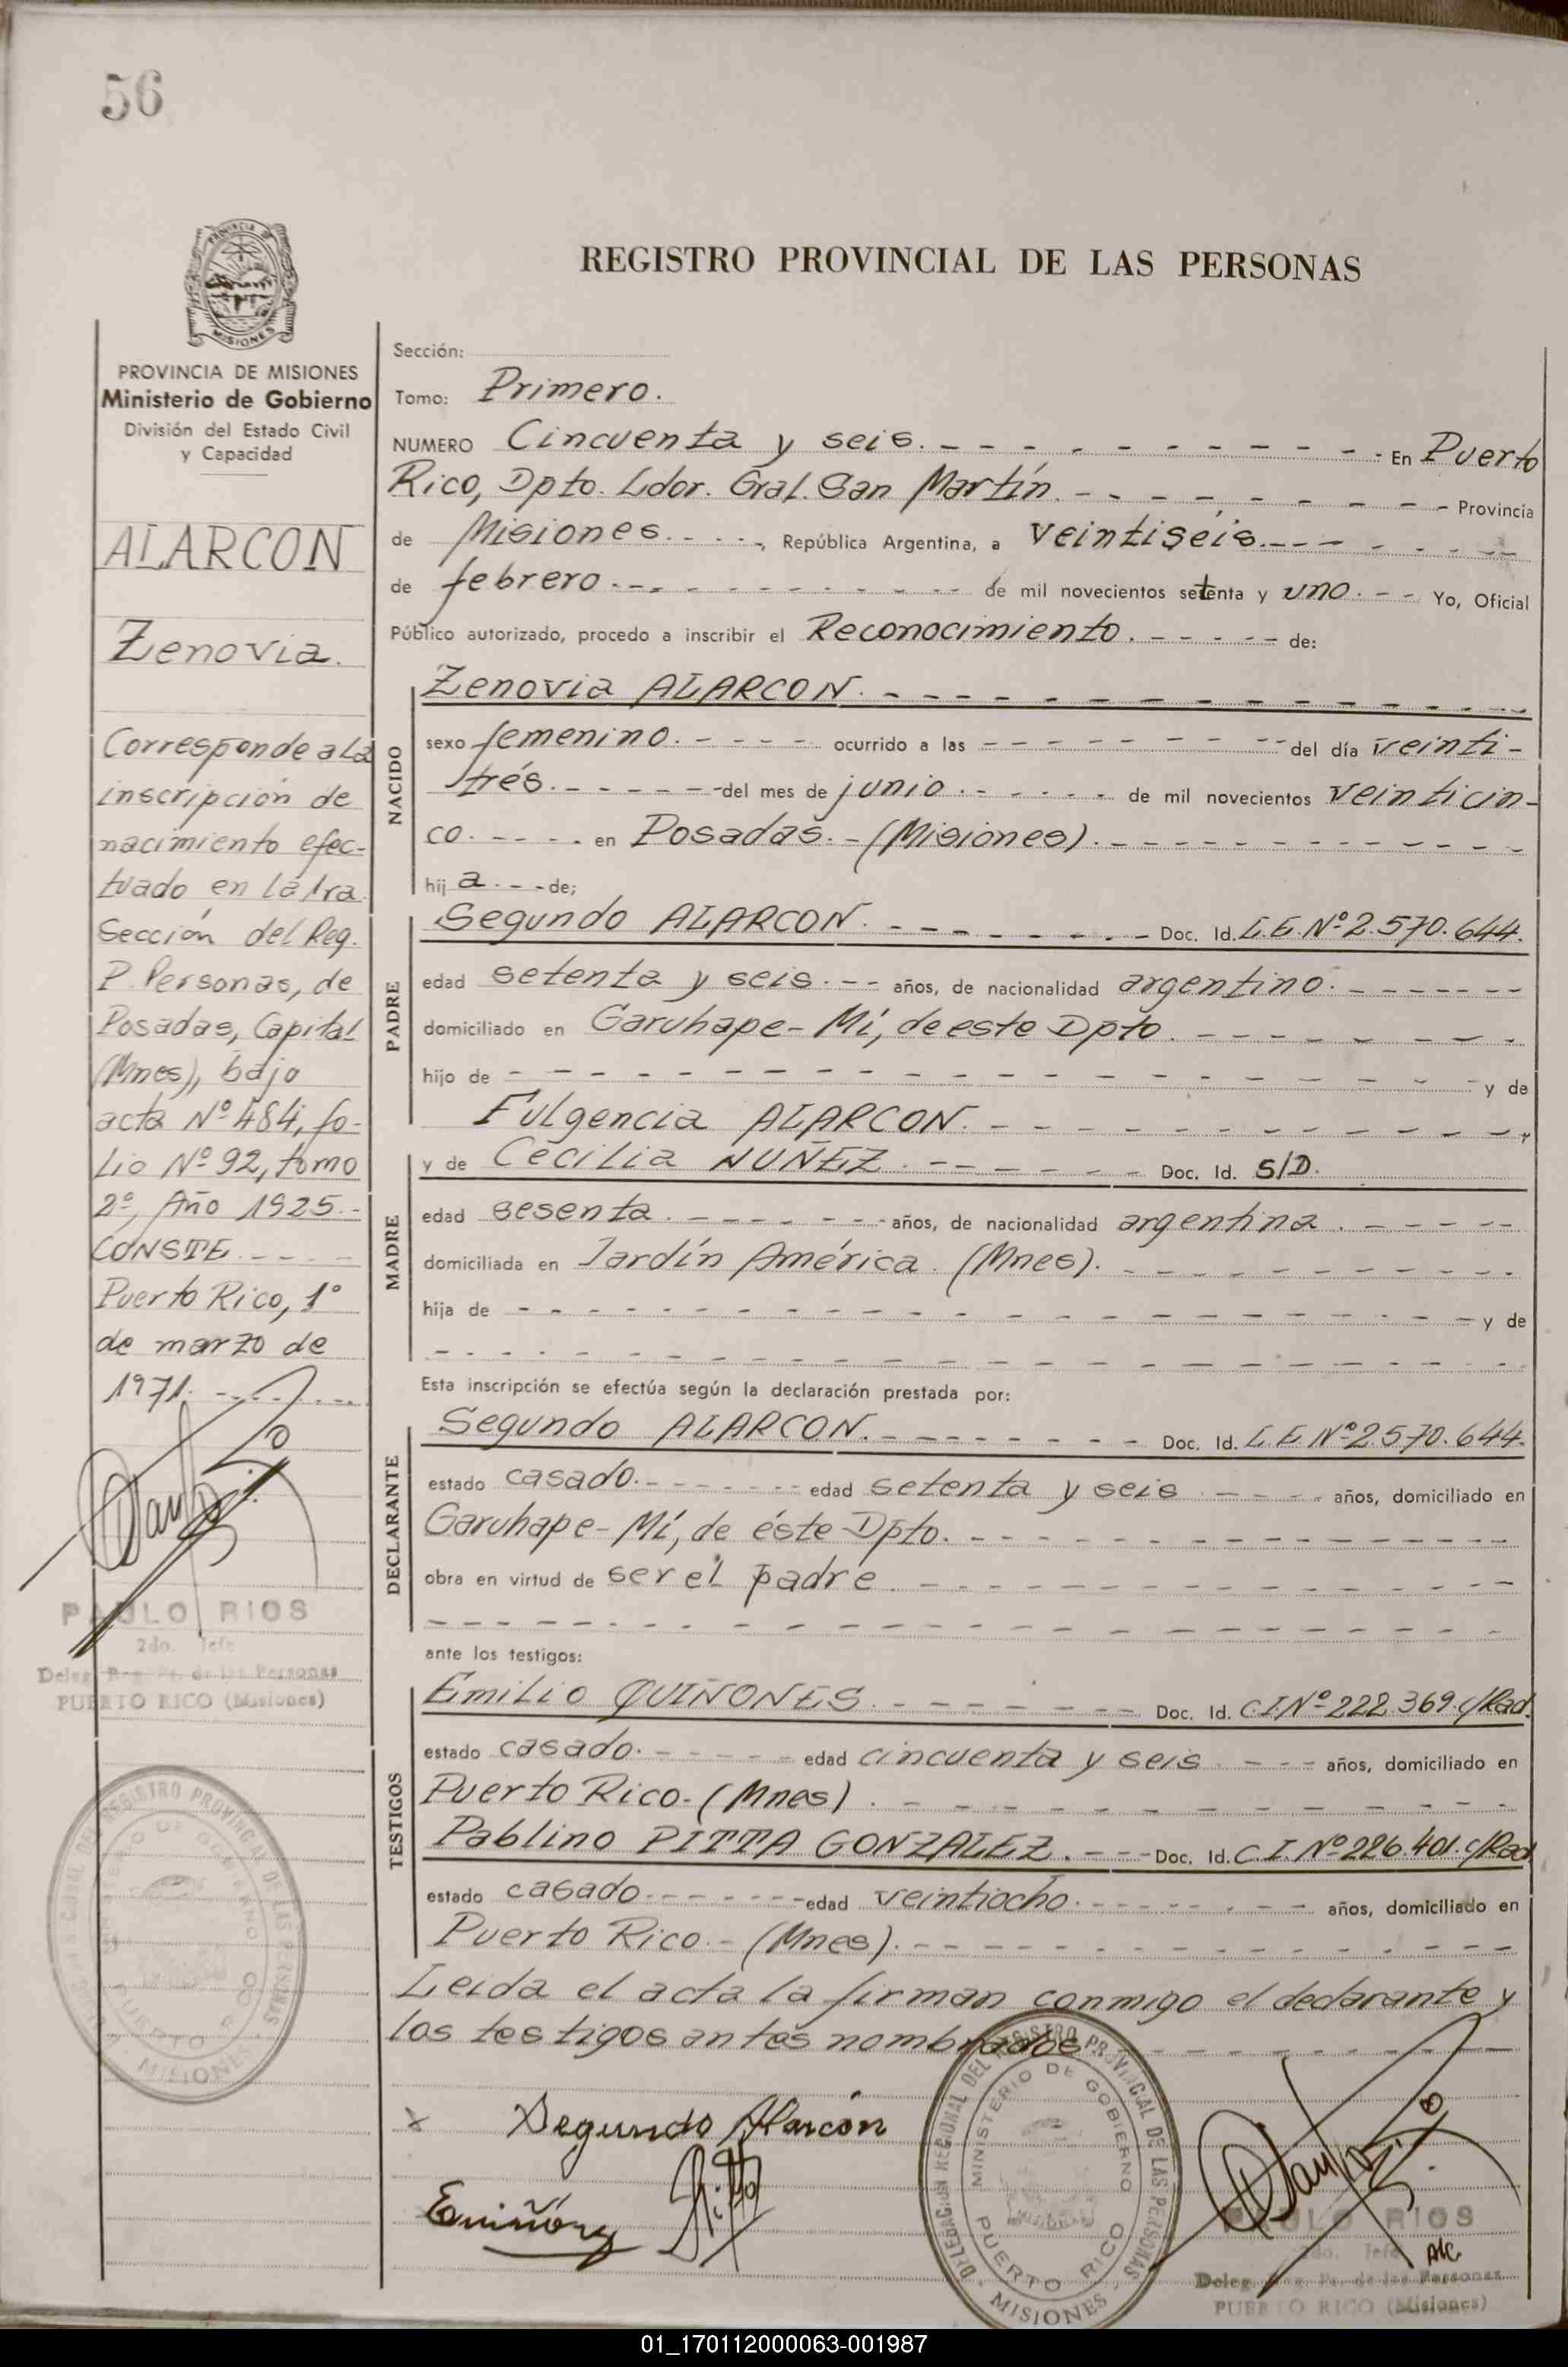 56
PROVINCIA DE MISIONES
Ministerio de Gobierno
División del Estado Civil
y Capacidad
ALARCON
Zenovia.
Corresponde a La
inscripción de
nacimiento efec-
tuado en la 1ra.
Sección del Reg.
P. Personas, de
Posadas, Capital
(Mnes), bajo
acta Nº 484, fo-
Lio Nº 92, tomo
2º, Año 1925.-
CONSTE.----
Puerto Rico, 1º
de marzo de
1971.
PAULO RIOS
2do. Jefe
Deleg. Reg. Pr. de las Personas
PUERTO RICO (Misiones)
REGISTRO PROVINCIAL DE LAS PERSONAS
Sección:
Tomo: Primero.
NUMERO Cincuenta y seis. En Puerto
Rico, Dpto. Ldor. Gral. San Martín. Provincia
de Misiones. , República Argentina, a veintiséis.
de febrero. de mil novecientos setenta y uno. Yo, Oficial
Público autorizado, procedo a inscribir el Reconocimiento. de:
NACIDO
Zenovia ALARCON.
sexo femenino. ocurrido a las del día veinti-
trés. del mes de junio. de mil novecientos veinticin-
co. en Posadas.-(Misiones).
hij a. de;
PADRE
Segundo ALARCON. Doc. Id. L.E. Nº 2.570.644.
edad setenta y seis. años, de nacionalidad argentino.
domiciliado en Garuhape-Mí, de este Dpto.
hijo de y de
Fulgencia ALARCON.
MADRE
y de Cecilia NUÑEZ. Doc. Id. S/D.
edad sesenta. años, de nacionalidad argentina.
domiciliada en Jardín América. (Mnes).
hija de y de
Esta inscripción se efectúa según la declaración prestada por:
DECLARANTE
Segundo ALARCON. Doc. Id. L.E Nº 2.570.644.
estado casado. edad setenta y seis años, domiciliado en
Garuhape-Mí, de éste Dpto.
obra en virtud de ser el padre.
ante los testigos:
TESTIGOS
Emilio QUIÑONES. Doc. Id. C.I. Nº 222.369. c/Rad.
estado casado. edad cincuenta y seis. años, domiciliado en
Puerto Rico.-(Mnes).
Pablino PITTA GONZALEZ. Doc. Id. C.I. Nº 226.401. c/Rad
estado casado. edad veintiocho. años, domiciliado en
Puerto Rico.-(Mnes).
Leida el acta la firman conmigo el declarante y
los testigos antes nombrados
x Segundo Alarcón
DELEGACION REGIONAL DEL REGISTRO PROVINCIAL DE LAS PERSONAS
MINISTERIO DE GOBIERNO
PUERTO RICO
- MISIONES -
PAULO RIOS
2do. Jefe A/C
Deleg. Reg. Pr. de las Personas
PUERTO RICO (Misiones)
01_170112000063-001987